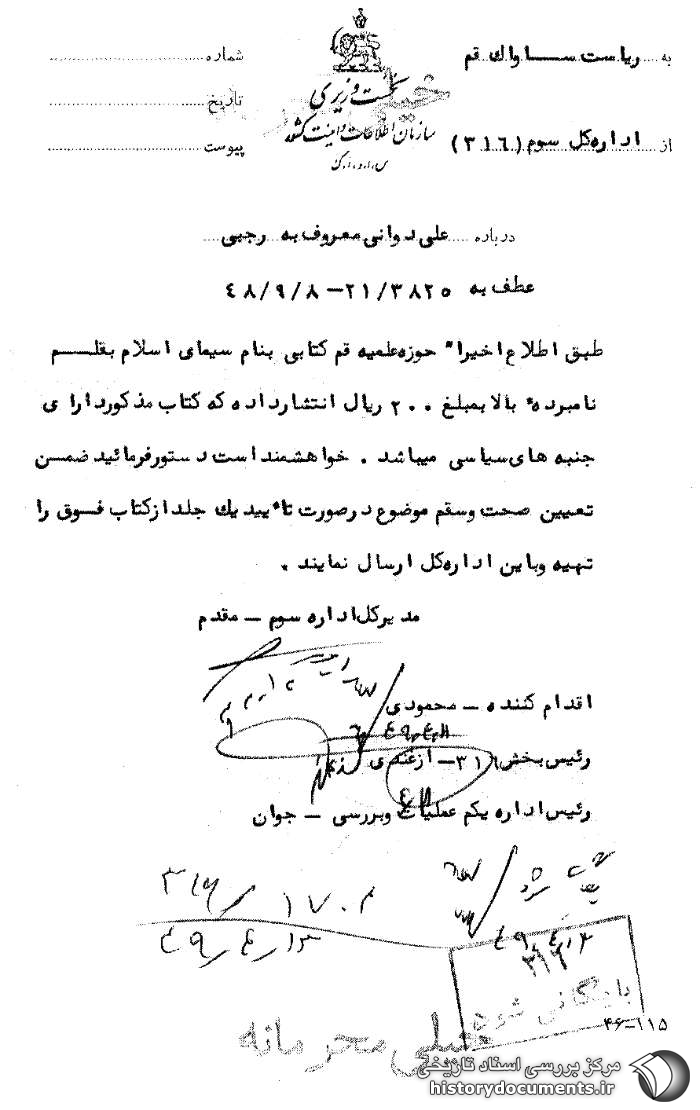 به ریاست ساواك قم
شماره
نخست وزیری
تاریخ
سازمان اطلاعات و امنیت کشور
از اداره کل سوم (۳۱٦)
پیوست
س.ا.و.ا.ک
درباره علی دوانی معروف به رجبی
عطف به ۲۱/۳۸۲۵-۴۸/۹/۸
طبق اطلاع اخیرا" حوزه علمیه قم کتابی بنام سیمای اسلام بقلم
نامبرده بالا بمبلغ ۲۰۰ ریال انتشار داده که کتاب مذکور دارای
جنبه های سیاسی میباشد . خواهشمند است دستور فرمائید ضمن
تعیین صحت وسقم موضوع در صورت تائیید یك جلد از کتاب فوق را
تهیه وباین اداره کل ارسال نمایند .
مدیر کل اداره سوم - مقدم
اقدام کننده - محمودی
رئیس بخش ۳۱٦ - ازغندی
رئیس اداره یکم عملیات وبررسی - جوان
بایگانی شود
۴۶-۱۱۵
خیلی محرمانه
مرکز بررسی اسناد تاریخی
historydocuments.ir